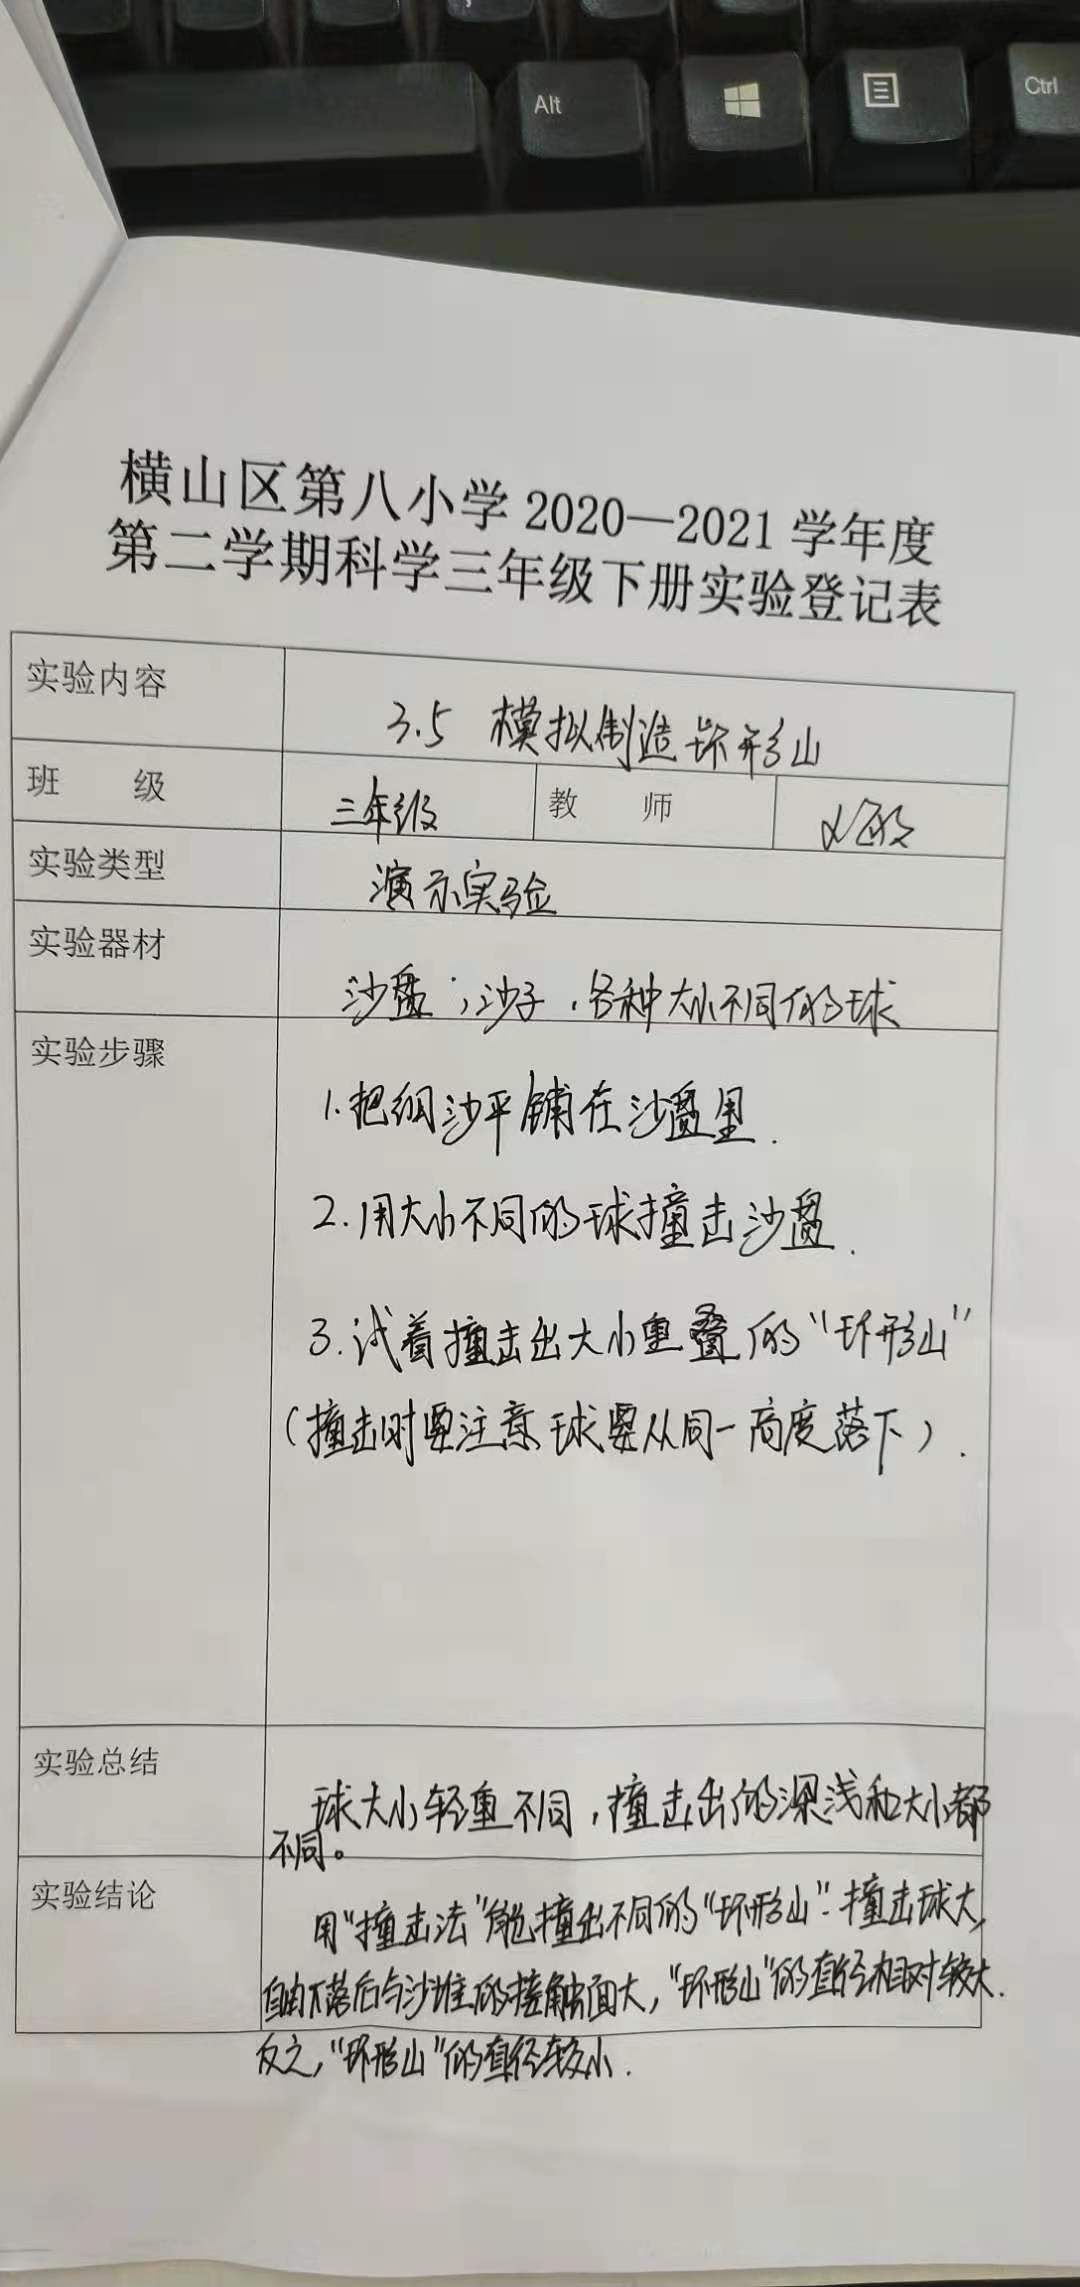 Alt
Ctrl
横山区第八小学2020—2021学年度
第二学期科学三年级下册实验登记表
实验内容 3.5 模拟制造环形山
班 级 三年级 教 师
实验类型 演示实验
实验器材 沙盘,沙子,各种大小不同的球
实验步骤
1.把细沙平铺在沙盘里.
2.用大小不同的球撞击沙盘.
3.试着撞击出大小重叠的“环形山”
(撞击时要注意球要从同一高度落下).
实验总结 球大小轻重不同,撞击出的深浅和大小都
不同。
实验结论 用“撞击法”能撞出不同的“环形山”.撞击球大,
自由下落后与沙堆的接触面大,“环形山”的直径相对较大.
反之,“环形山”的直径较小.